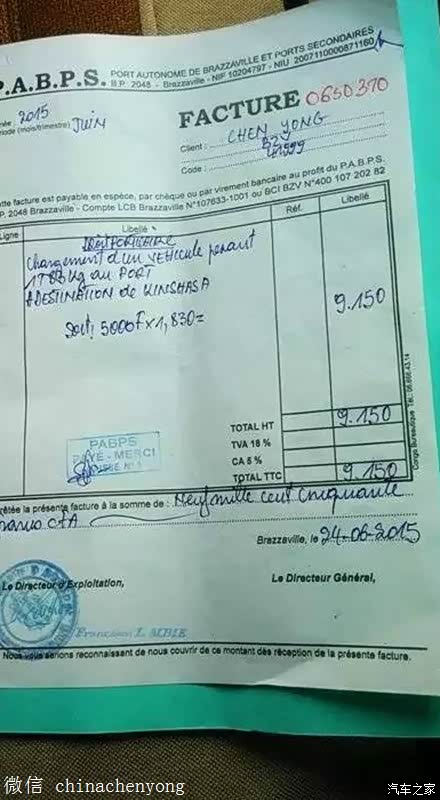 P.A.B.P.S. PORT AUTONOME DE BRAZZAVILLE ET PORTS SECONDAIRES
B.P. 2048 - Brazzaville - NIF 10204797 - NIU 2007110000871160
2015
(mois/trimestre) JUIN
FACTURE 0650370
Client : CHEN YONG
Code :
facture est payable en espèce, par chèque ou par virement bancaire au profit du P.A.B.P.S.
2048 Brazzaville - Compte LCB Brazzaville N°107633-1001 ou BCI BZV N°400 107 202 82
Ligne Libellé Réf. Libellé
Chargement d'un VEHICULE pesant
KG au PORT
A DESTINATION de KINSHASA
9.150
Soit! 5000F x 1,830 =
TOTAL HT 9.150
TVA 18 %
CA 5 %
TOTAL TTC 9.150
PABPS
PAYE - MERCI
CAISSE N° 1
Congo Bureautique
la présente facture à la somme de : Neuf mille cent cinquante
francs CFA
Brazzaville, le 24-06-2015
Le Directeur d'Exploitation, Le Directeur Général,
Nous vous serions reconnaissant de nous couvrir de ce montant dès réception de la présente facture.
微信 chinachenyong
汽车之家